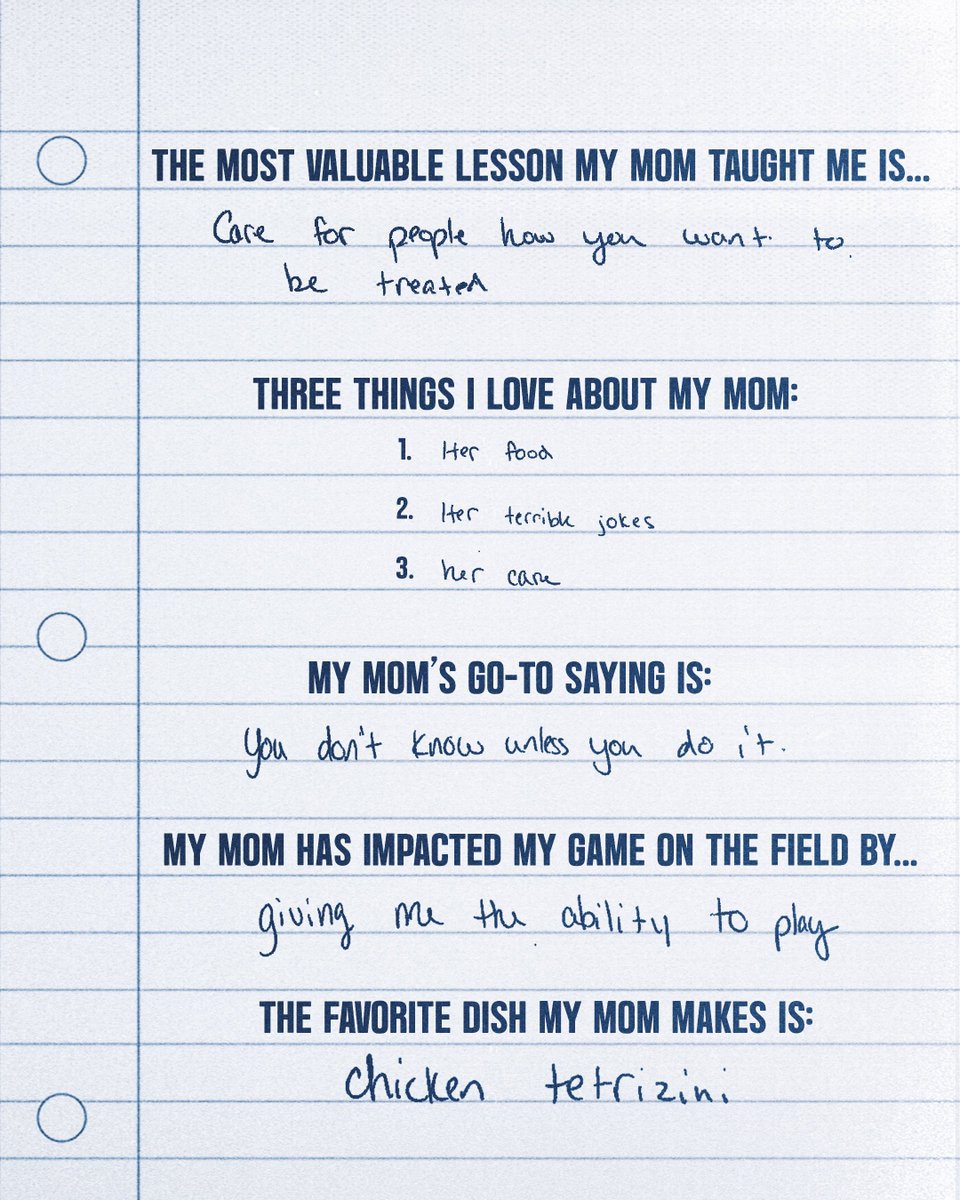 THE MOST VALUABLE LESSON MY MOM TAUGHT ME IS...
Care for people how you want to
be treated
THREE THINGS I LOVE ABOUT MY MOM:
1. Her food
2. Her terrible jokes
3. her care
MY MOM'S GO-TO SAYING IS:
You don't know unless you do it.
MY MOM HAS IMPACTED MY GAME ON THE FIELD BY...
giving me the ability to play
THE FAVORITE DISH MY MOM MAKES IS:
chicken tetrizini